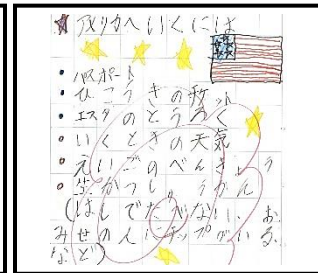 アメリカへいくには
・パスポート
・ひこうきの秋ット
・エスタのとうろく
・いくときの天気
・えいごのべんきょう
・生かつしゅうかん
(はしでたべない、お
みせの人にチップがいる
など)